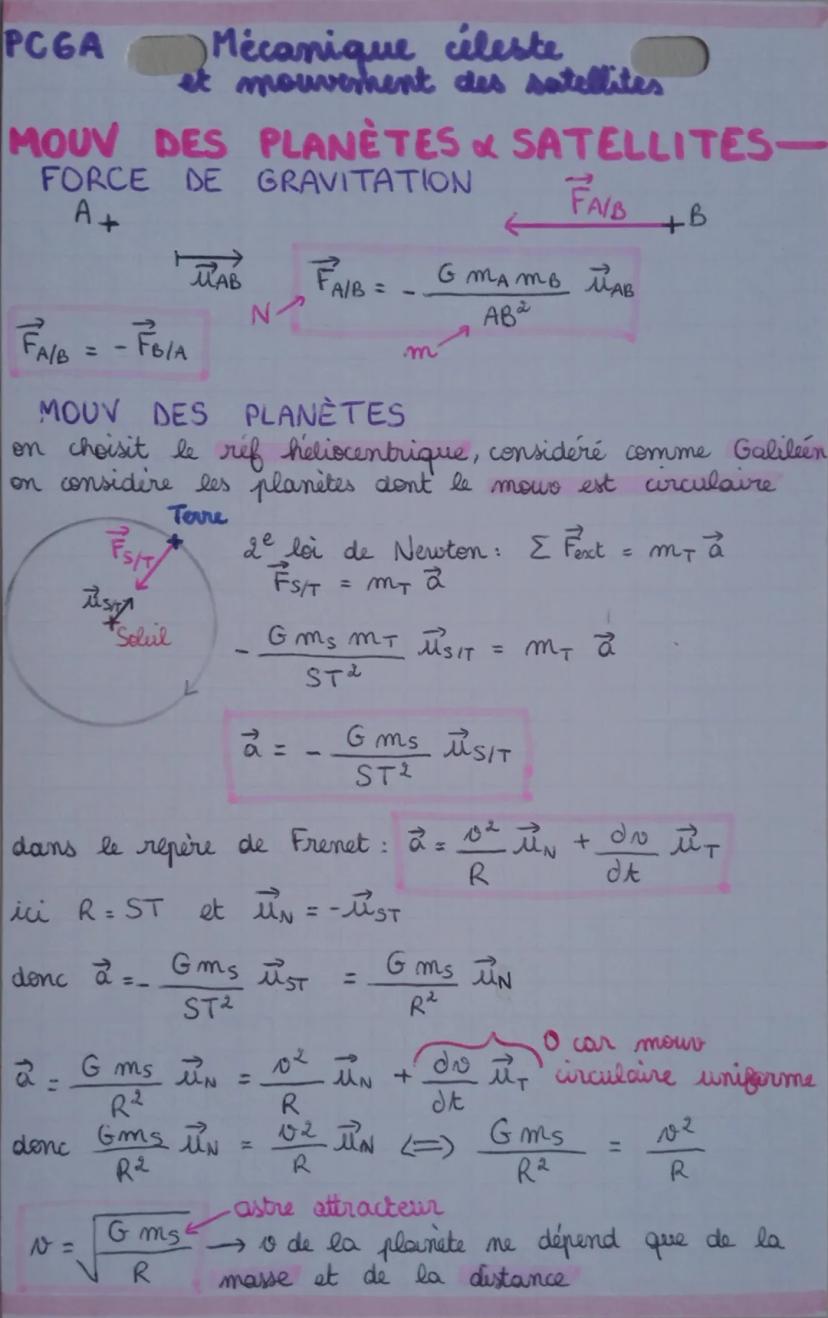 PC6A Mécanique céleste
et mouvement des satellites
MOUV DES PLANÈTES & SATELLITES
FORCE DE GRAVITATION
A + F⃗A/B + B
u⃗AB F⃗A/B = - G mA mB / AB² u⃗AB
N m
F⃗A/B = - F⃗B/A
MOUV DES PLANÈTES
on choisit le réf héliocentrique, considéré comme Galiléen
on considère les planètes dont le mouv est circulaire
Terre
F⃗S/T
u⃗S/T
Soleil
2e loi de Newton : Σ F⃗ext = mT a⃗
F⃗S/T = mT a⃗
- G mS mT / ST² u⃗S/T = mT a⃗
a⃗ = - G mS / ST² u⃗S/T
dans le repère de Frenet : a⃗ = v²/R u⃗N + dv/dt u⃗T
ici R = ST et u⃗N = -u⃗ST
donc a⃗ = - G mS / ST² u⃗ST = G mS / R² u⃗N
0 car mouv
a⃗ = G mS / R² u⃗N = v²/R u⃗N + dv/dt u⃗T circulaire uniforme
donc G mS / R² u⃗N = v²/R u⃗N <=> G mS / R² = v²/R
astre attracteur
v = √(G mS / R) → v de la planète ne dépend que de la
masse et de la distance